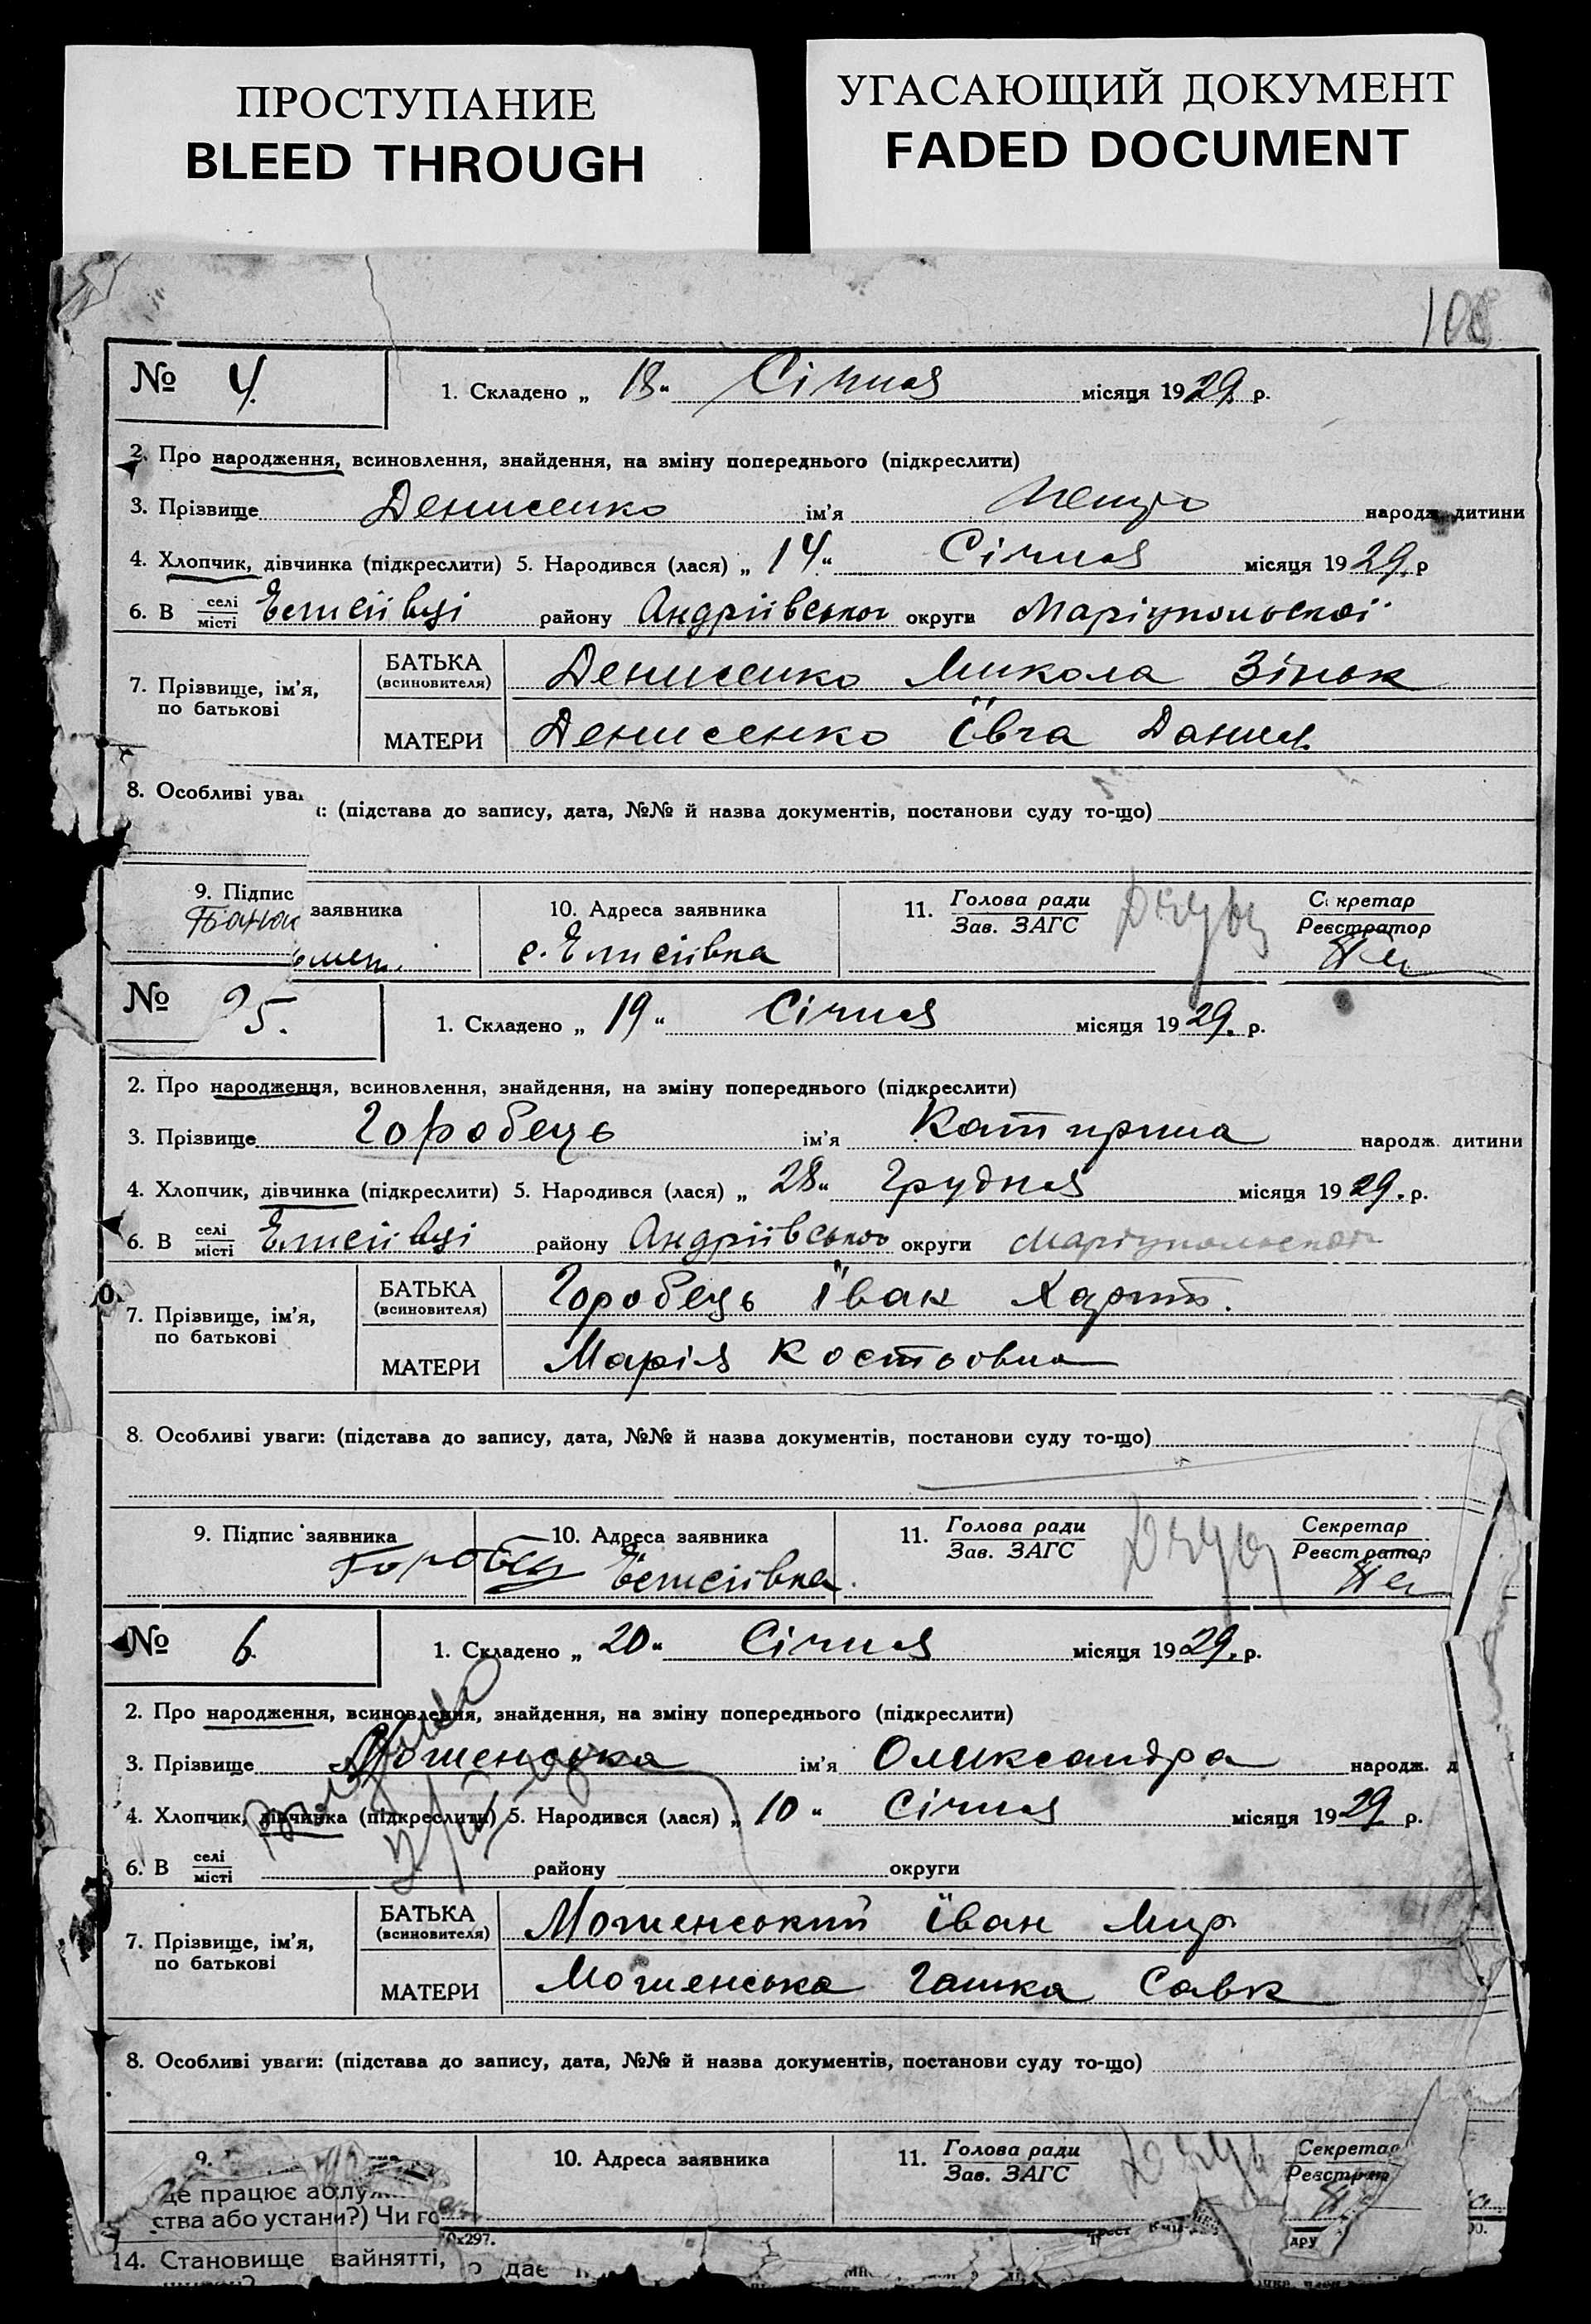 ПРОСТУПАНИЕ
BLEED THROUGH
УГАСАЮЩИЙ ДОКУМЕНТ
FADED DOCUMENT
108
№ 4. 1. Складено „ 18 “ Січня місяця 1929 р.
2. Про народження, всиновлення, знайдення, на зміну попереднього (підкреслити)
3. Прізвище Денисенко ім'я Петро народж. дитини
4. Хлопчик, дівчинка (підкреслити) 5. Народився (лася) „ 14 “ Січня місяця 1929. р
6. В селі місті Елисіївці району Андріївського округи Маріупольскоі
7. Прізвище, ім'я, по батькові
БАТЬКА (всиновителя) Денисенко Микола Зіньк
МАТЕРИ Денисенко Ївга Данил.
8. Особливі уваги: (підстава до запису, дата, №№ й назва документів, постанови суду то-що)
9. Підпис заявника 10. Адреса заявника 11. Голова ради Зав. ЗАГС Секретар Реєстратор
с. Елисіївка
№ 5. 1. Складено „ 19 “ Січня місяця 1929. р.
2. Про народження, всиновлення, знайдення, на зміну попереднього (підкреслити)
3. Прізвище Горобець ім'я Катирина народж. дитини
4. Хлопчик, дівчинка (підкреслити) 5. Народився (лася) „ 28 “ Грудня місяця 1929. р.
6. В селі місті Елисіївці району Андріївського округи Маріупольскоі
7. Прізвище, ім'я, по батькові
БАТЬКА (всиновителя) Горобець Їван Харит.
МАТЕРИ Марія Костьовна
8. Особливі уваги: (підстава до запису, дата, №№ й назва документів, постанови суду то-що)
9. Підпис заявника 10. Адреса заявника 11. Голова ради Зав. ЗАГС Секретар Реєстратор
Горобец Елисіївка.
№ 6. 1. Складено „ 20 “ Січня місяця 1929. р.
2. Про народження, всиновлення, знайдення, на зміну попереднього (підкреслити)
3. Прізвище Моженська ім'я Олександра народж. д
4. Хлопчик, дівчинка (підкреслити) 5. Народився (лася) „ 10 “ Січня місяця 1929 р.
6. В селі місті району округи
7. Прізвище, ім'я, по батькові
БАТЬКА (всиновителя) Моженський Їван Мир
МАТЕРИ Моженська Гашка Савк
8. Особливі уваги: (підстава до запису, дата, №№ й назва документів, постанови суду то-що)
9. 10. Адреса заявника 11. Голова ради Зав. ЗАГС Секретар
Де працює або
ства або устани?) Чи
14. Становище вайнятті,
дає